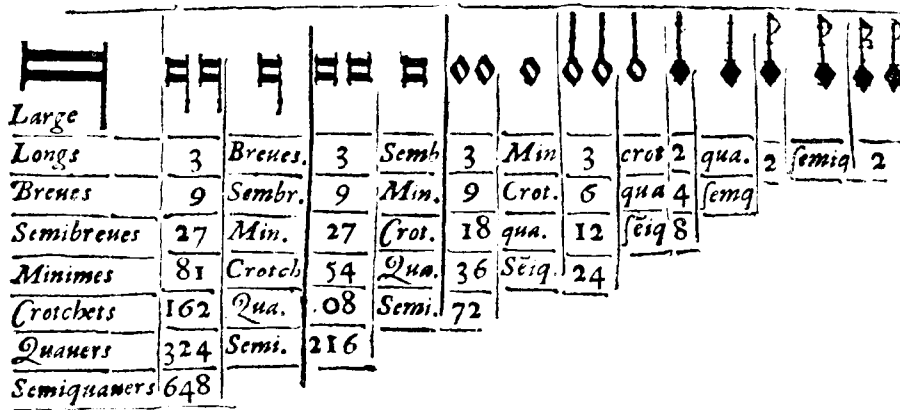 Large
Longs 3 Breues. 3 Semb 3 Min 3 crot 2 qua. 2 ſemiq 2
Breues 9 Sembr. 9 Min. 9 Crot. 6 qua 4 ſemq
Semibreues 27 Min. 27 Crot. 18 qua. 12 ſẽiq 8
Minimes 81 Crotch 54 Qua. 36 Sẽiq. 24
Crotchets 162 Qua. 08 Semi. 72
Quauers 324 Semi. 216
Semiquauers 648